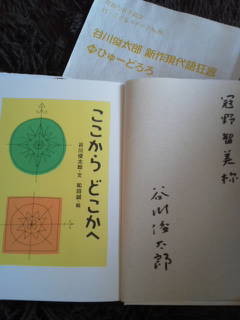 谷川俊太郎 新作現代語狂言
ひゅーどろろ
ここから どこかへ
谷川俊太郎・文 和田誠・絵
智美様
谷川俊太郎